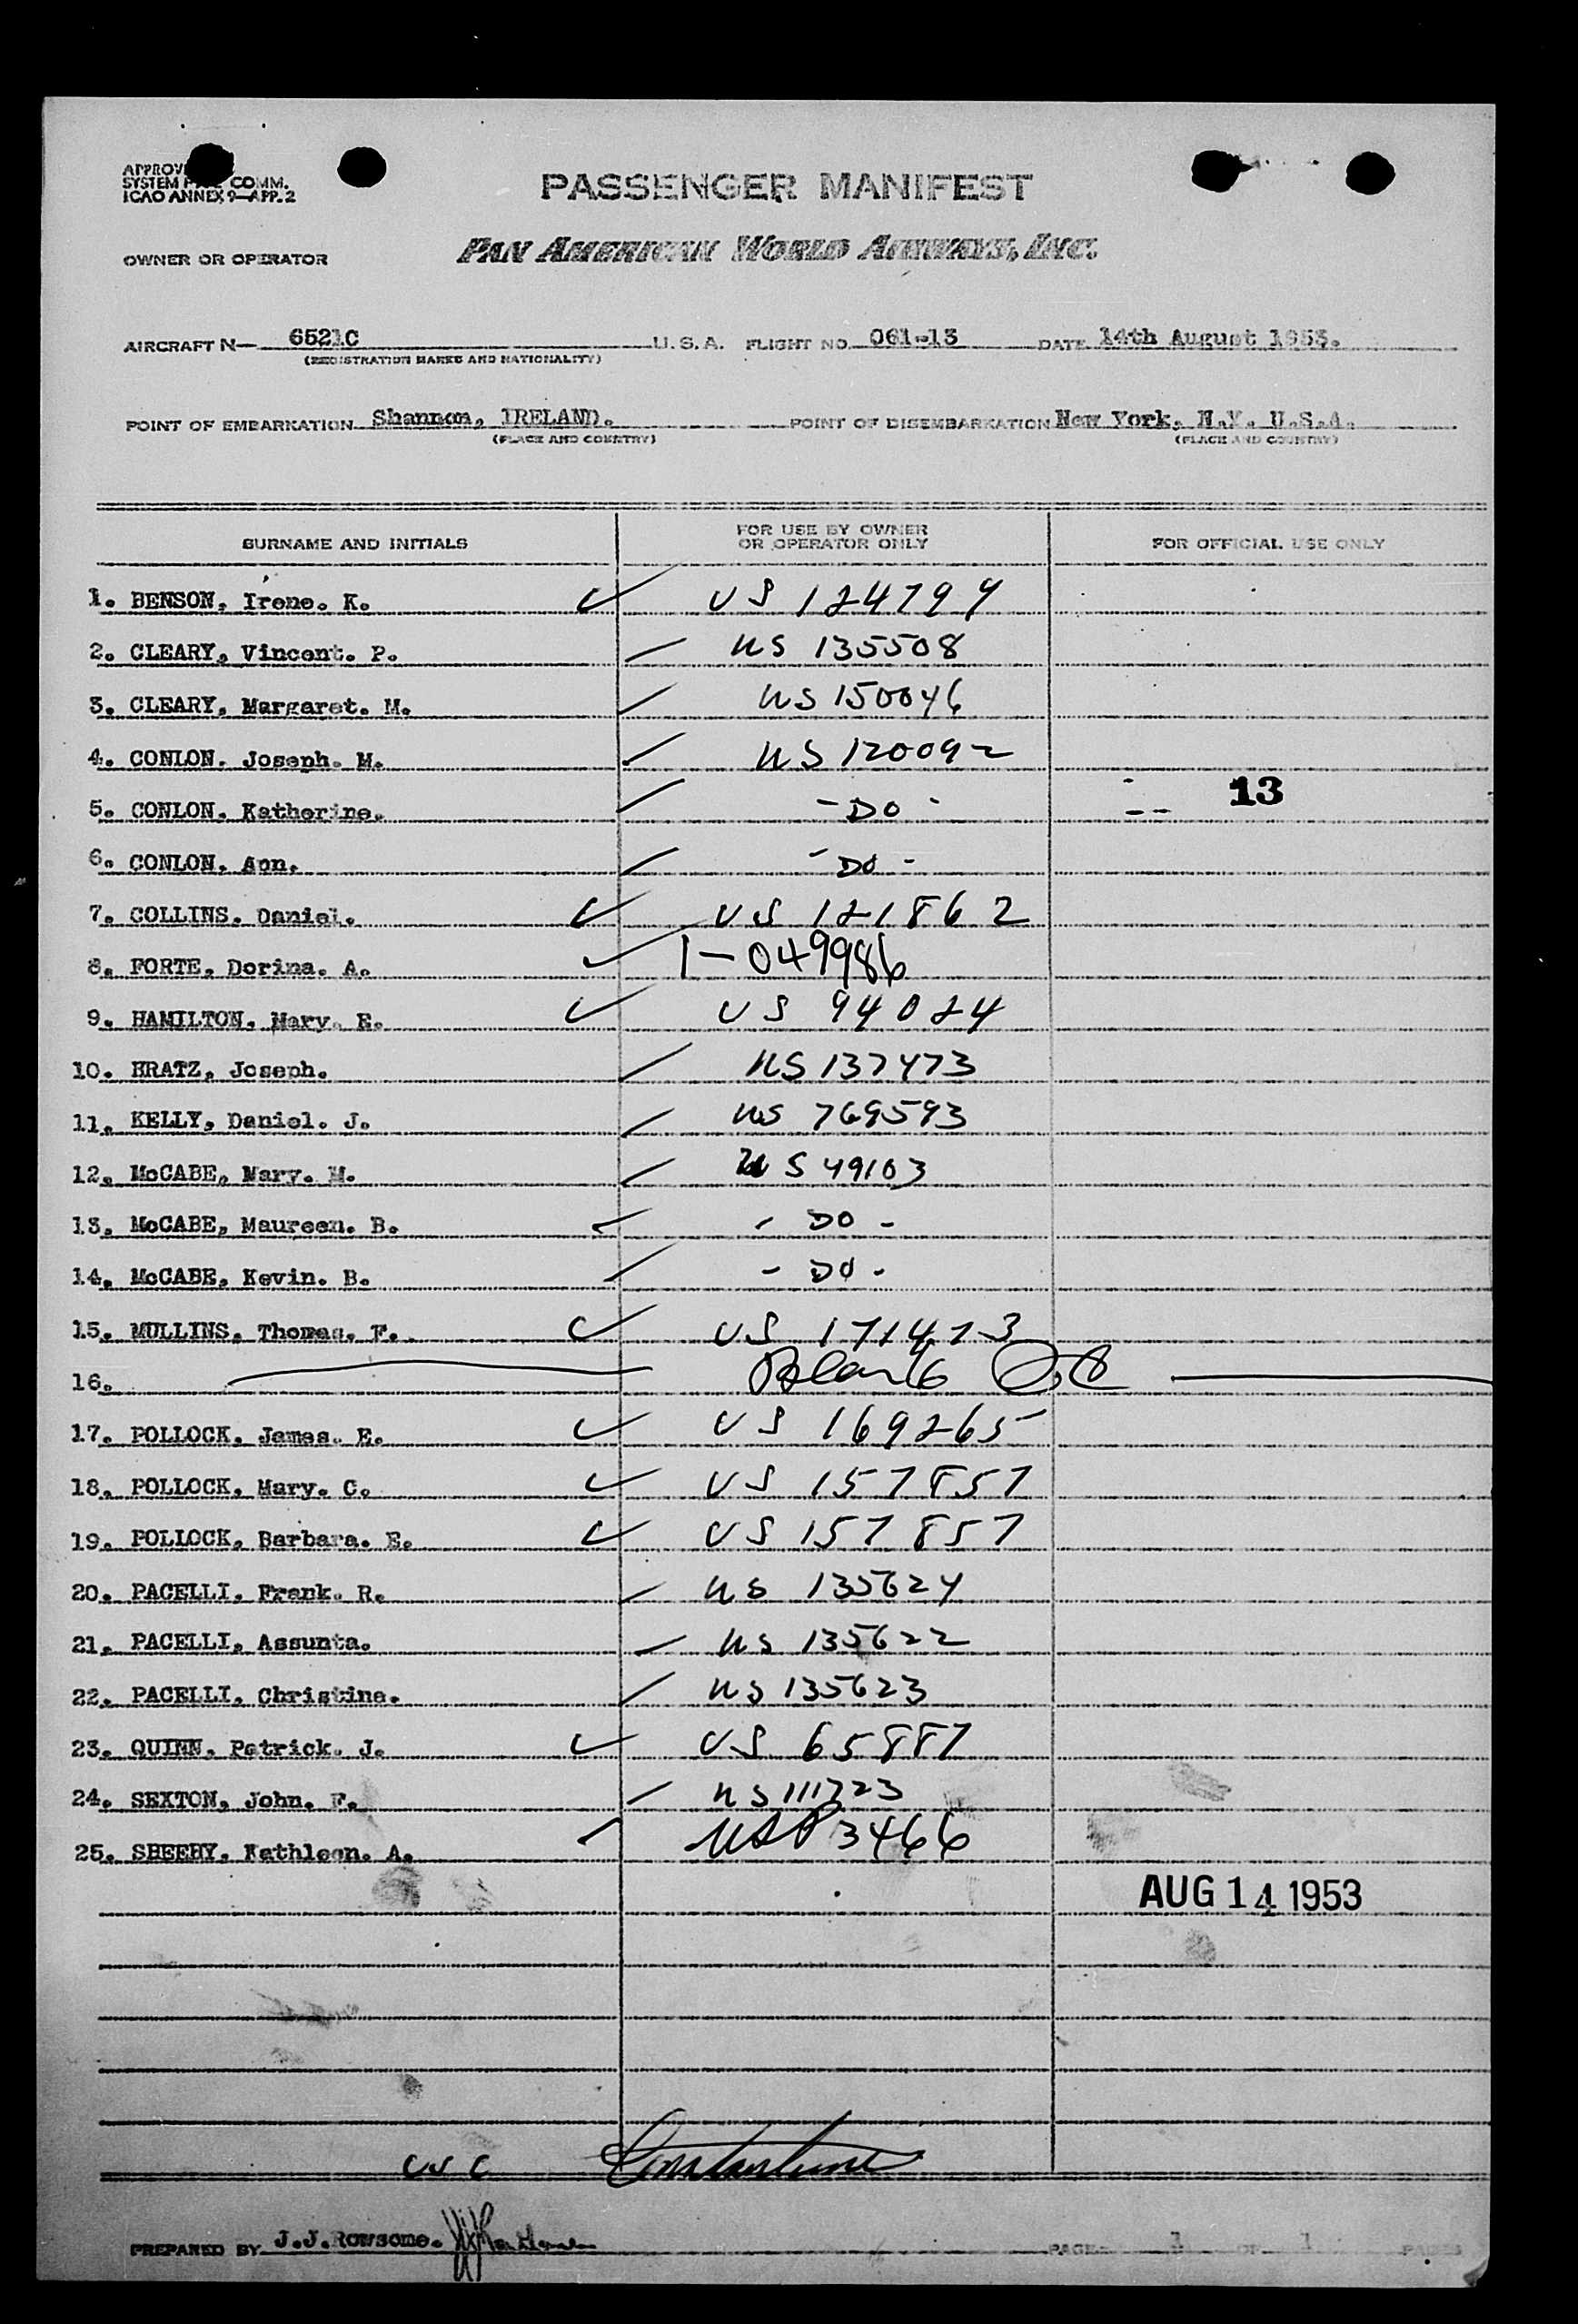 APPROV
SYSTEM COMM.
ICAO ANNEX 9—APP. 2
PASSENGER MANIFEST
OWNER OR OPERATOR PAN AMERICAN WORLD AIRWAYS, INC.
AIRCRAFT N— 6521C U. S. A. FLIGHT NO. 061-13 DATE 14th August 1953.
(REGISTRATION MARKS AND NATIONALITY)
POINT OF EMBARKATION Shannon, IRELAND. POINT OF DISEMBARKATION New York, N.Y. U.S.A.
(PLACE AND COUNTRY) (PLACE AND COUNTRY)
SURNAME AND INITIALS FOR USE BY OWNER OR OPERATOR ONLY FOR OFFICIAL USE ONLY
1. BENSON, Irene. K. ✓ US 124794
2. CLEARY, Vincent. P. US 135508
3. CLEARY, Margaret. M. US 150046
4. CONLON. Joseph. M. US 120092
5. CONLON. Katherine. - DO - 13
6. CONLON. Ann. - DO -
7. COLLINS. Daniel. ✓ US 121862
8. FORTE, Dorina. A. ✓ 1-049986
9. HAMILTON. Mary. E. ✓ US 94024
10. KRATZ, Joseph. US 137473
11. KELLY, Daniel. J. US 769593
12. McCABE, Mary. M. US 49103
13. McCABE, Maureen. B. - DO -
14. McCABE, Kevin. B. - DO -
15. MULLINS. Thomas. F. ✓ US 171473
16. Blank
17. POLLOCK. James. E. ✓ US 169265
18. POLLOCK. Mary. C. ✓ US 157857
19. POLLOCK, Barbara. E. ✓ US 157857
20. PACELLI. Frank. R. US 135624
21. PACELLI, Assunta. US 135622
22. PACELLI. Christine. US 135623
23. QUINN. Patrick. J. ✓ US 65887
24. SEXTON, John. F. US 111723
25. SHEEHY. Kathleen. A. USP 3466
AUG 14 1953
US C
PREPARED BY J.J.Rowsome. PAGE 1 OF 1 PAGES